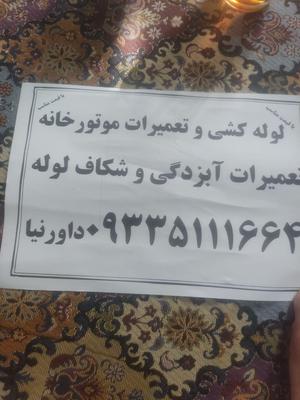 با قیمت مناسب
با قیمت مناسب
لوله کشی و تعمیرات موتورخانه
تعمیرات آبزدگی و شکاف لوله
۰۹۳۳۵۱۱۱۶۶۴ داورنیا